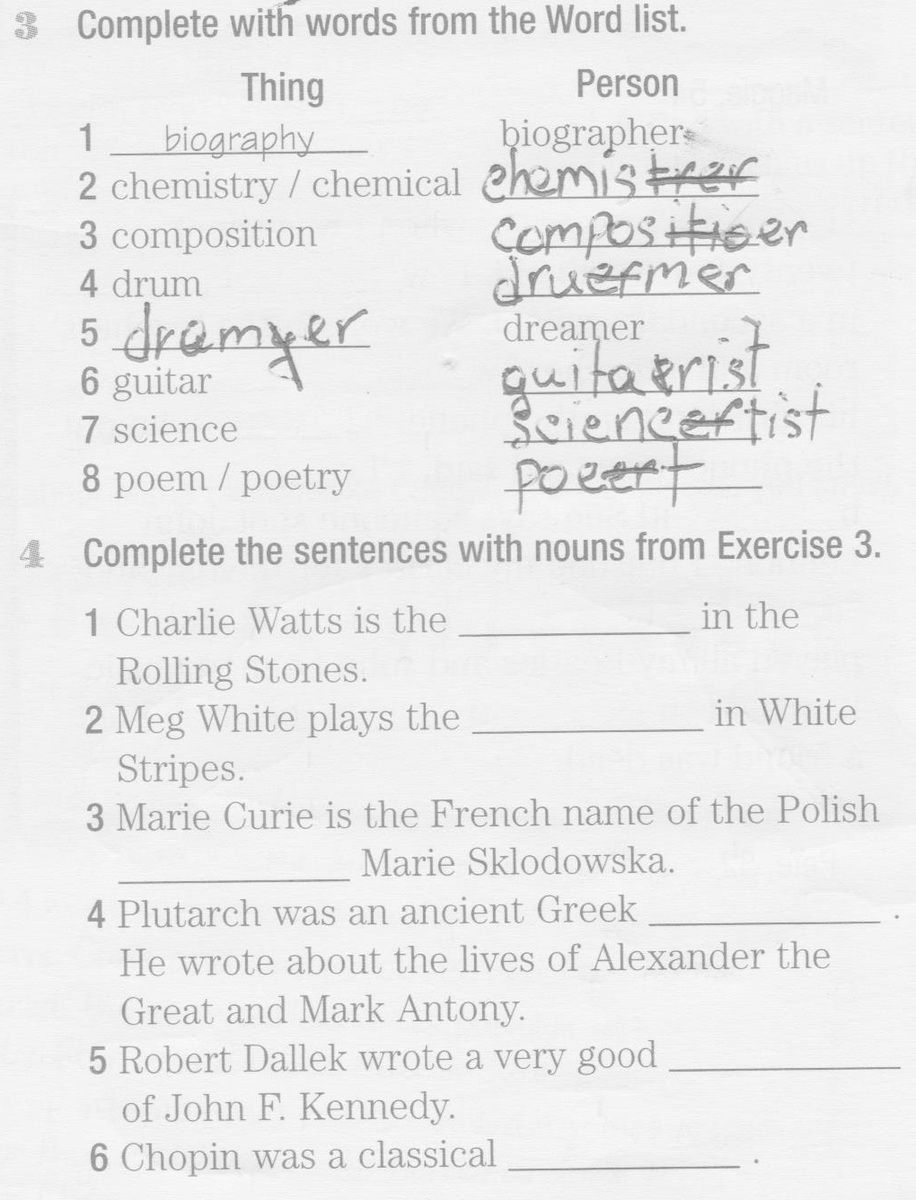 3 Complete with words from the Word list.
Thing Person
1 biography biographer
2 chemistry / chemical chemistrer
3 composition compositioer
4 drum druefmer
5 dramyer dreamer
6 guitar guitaerist
7 science sciencertist
8 poem / poetry poeert
4 Complete the sentences with nouns from Exercise 3.
1 Charlie Watts is the ____________ in the
Rolling Stones.
2 Meg White plays the ____________ in White
Stripes.
3 Marie Curie is the French name of the Polish
____________ Marie Sklodowska.
4 Plutarch was an ancient Greek ____________ .
He wrote about the lives of Alexander the
Great and Mark Antony.
5 Robert Dallek wrote a very good ____________
of John F. Kennedy.
6 Chopin was a classical ____________ .